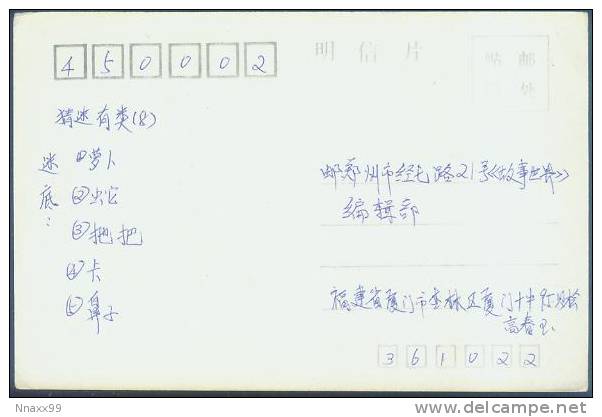 450002
明信片
贴邮
处
猜迷有奖(8)
迷底：
①萝卜
②蛇
③扫把
④卡
⑤鼻子
郑州市经七路21号《故事世界》
编辑部
福建省厦门市杏林区厦门十中
高春玉
361022
Nnaxx99
delcampe.net